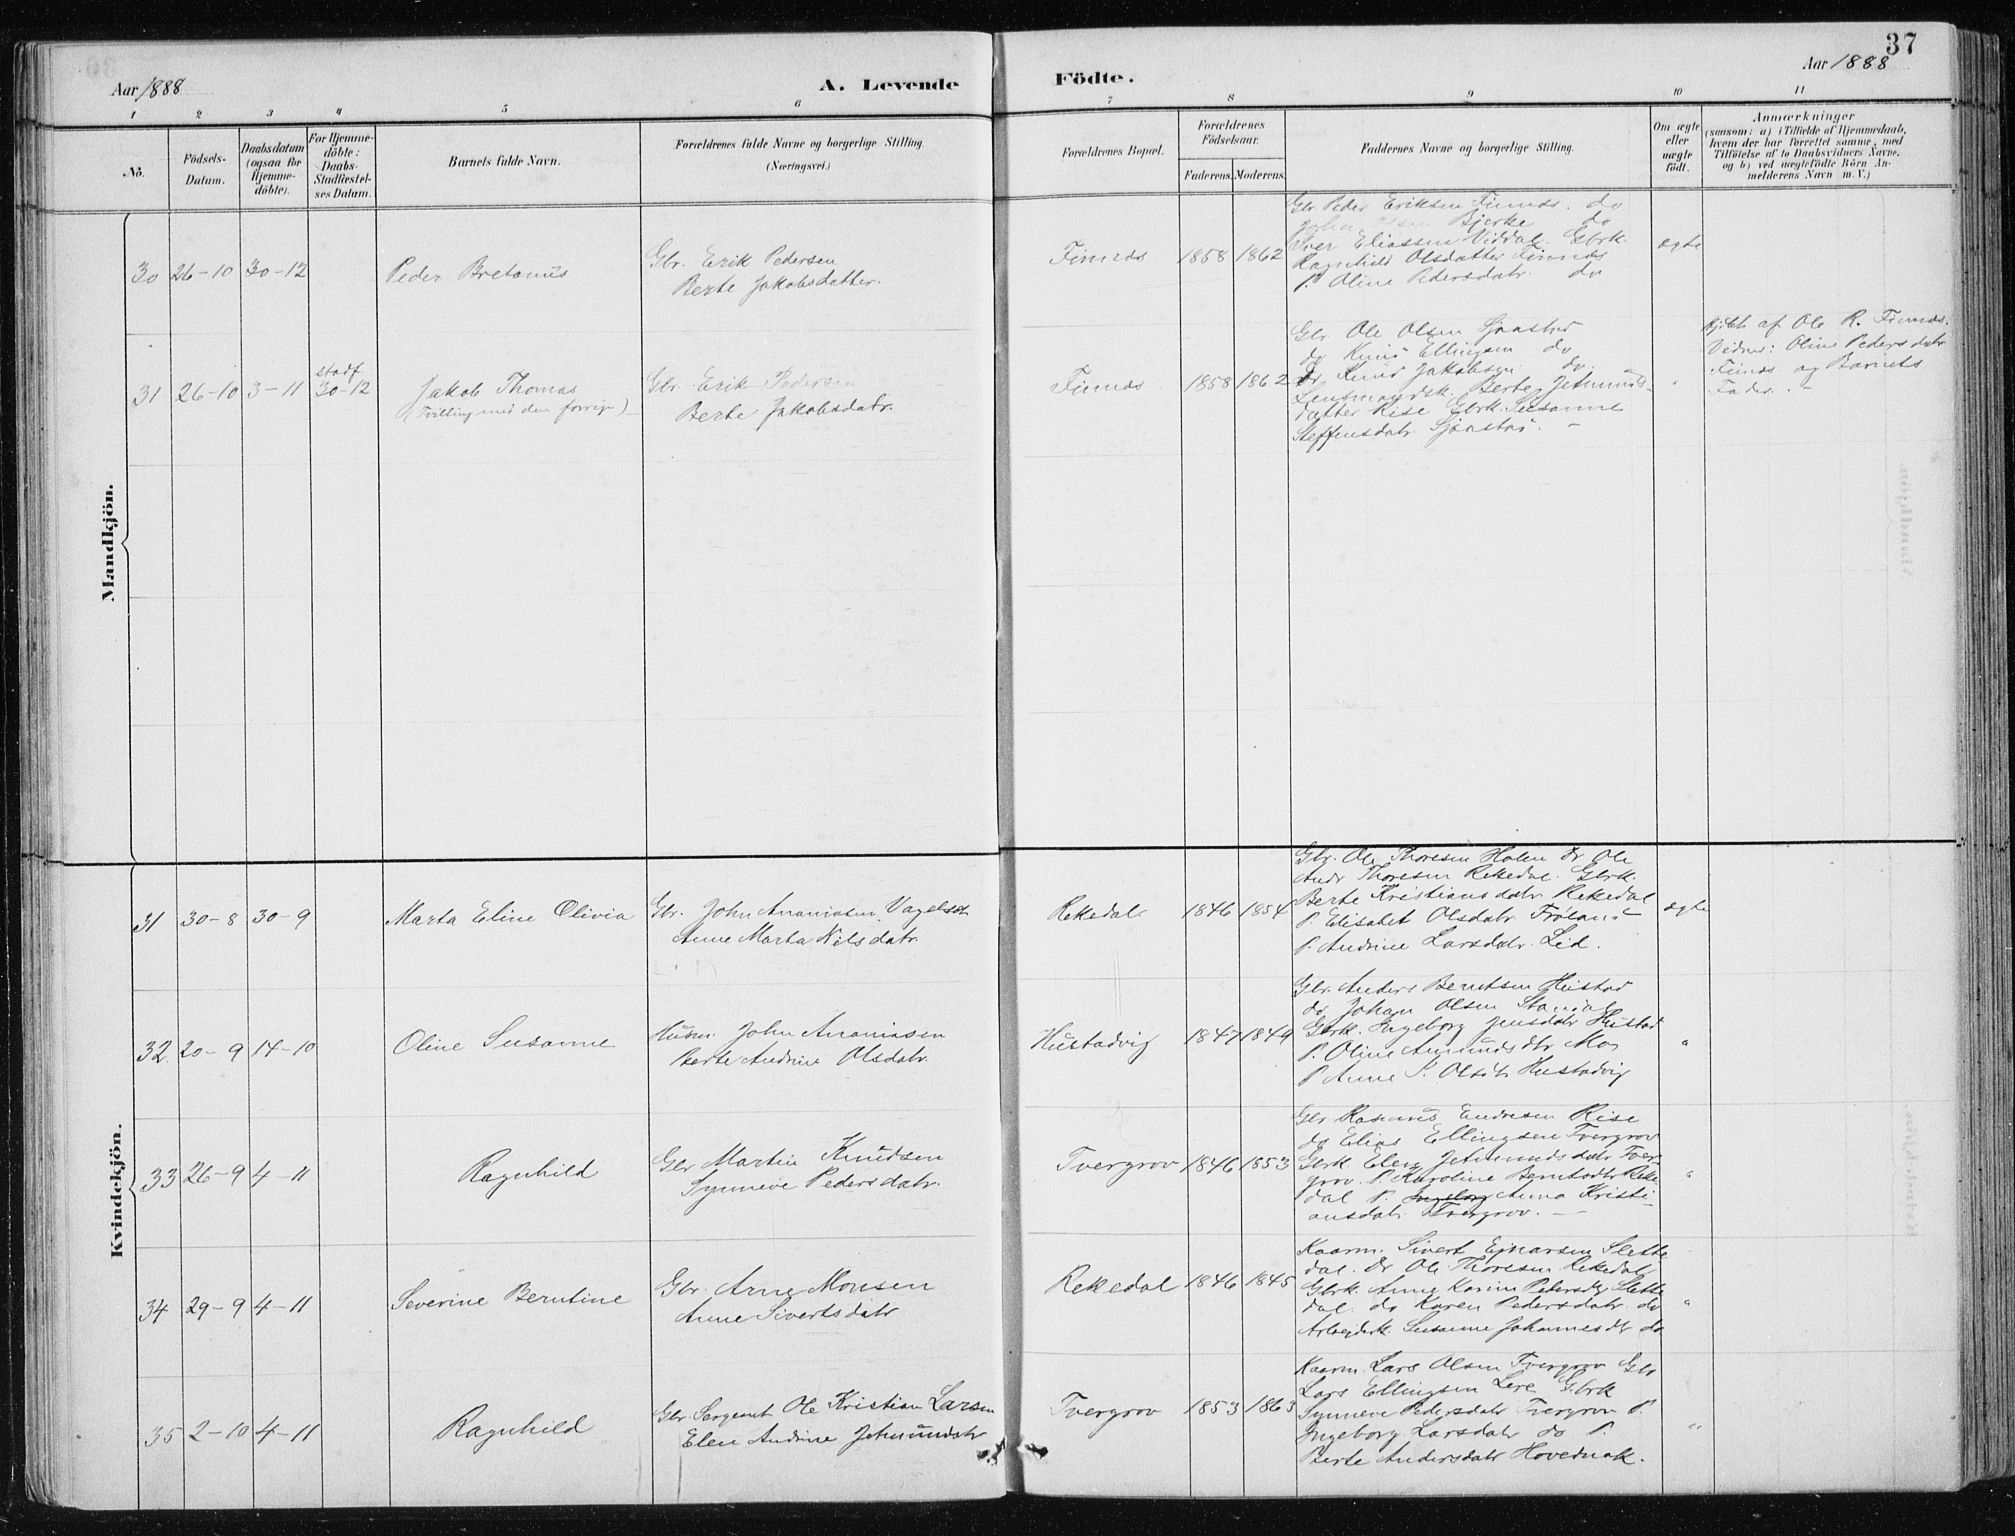 37
Aar 1888
A. Levende
Födte.
Aar 1888
1 2 3 4 5 6 7 8 9 10 11
No.
Födsels-
Datum.
Daabsdatum
(ogsaa for
Hjemme-
döbte).
For Hjemme-
döbte:
Daabs-
Stadfæstel-
ses Datum.
Barnets fulde Navn.
Forældrenes fulde Navne og borgerlige Stilling.
(Næringsvei.)
Forældrenes Bopæl.
Forældrenes
Födselsaar.
Faderens.
Moderens.
Faddernes Navne og borgerlige Stilling.
Om ægte
eller
uægte
födt.
Anmærkninger
(saasom: a) i Tilfælde af Hjemmedaab,
hvem der har forrettet samme, med
Tilföielse af to Daabsvidners Navne,
og b) ved uægtefödte Börn An-
melderens Navn m. V.)
Mandkjön.
30 26-10 30-12
Peder Bretanus
Gbr. Erik Pedersen
Berte Jakobsdatter.
Finnes 1858 1862
Gbr Peder Eriksen Finnes. do
Bjerke do
Iver Eliassen Viddal. Gbrk.
Ragnhild Olsdatter Finnes
P. Oline Pedersdatr. do
ægte
31 26-10 3-11
stadf
30-12
Jakob Thomas
(Tvilling med den forrige)
Gbr. Erik Pedersen
Berte Jakobsdatr.
Finnes 1858 1862
Gbr. Ole Olsen Sjaastad
do Knud Ellingsen do
Dr. Knud Jakobsen do.
Lensmandsk. Berte Jetmunds-
datter Rise Gbrk. Susanne
Steffensdatr. Sjaastad. –
"
Hjdbt af Ole R. Finnes.
Vidner: Oline Pedersdatr
Finnes og Barnets
Fader. –
Kvindekjön.
31 30-8 30-9
Marta Eline Olivia
Gbr. John Ananiasen
Anne Marta Nilsdatr.
Rekedal 1846 1854
Gbr. Ole Thoresen Holen Dr Ole
Andr Thoresen Rekedal. Gbrk.
Berte Kristiansdatr Rekedal
P. Elisabet Olsdatr. Fröland
P. Andrine Larsdatr. Lid.
ægte
32 20-9 14-10
Oline Susanne
Husm. John Ananiasen
Berte Andrine Olsdatr.
Hustadvig 1847 1849
Gbr. Anders Berntsen Hustad
do Johan Olsen Standal
Gbrk. Ingeborg Jensdatr Hustad
P. Oline Amundsdtr Mo
P Anne S. Olsdtr Hustadvig
"
33 26-9 4-11
Ragnhild
Gbr Martin Knudsen
Synneve Pedersdatr.
Tvergrov 1846 1853
Gbr Rasmus Endresen Rise
do Elias Ellingsen Tvergrov
Gbrk Elen Jetmundsdatr Tver-
grov. P. Karoline Berntsdtr Reke-
dal P. Ingeborg Anna Kristi-
ansdatr. Tvergrov. –
"
34 29-9 4-11
Severine Berntine
Gbr. Arne Monsen
Anne Sivertsdatr
Rekedal 1846 1845
Kaarm. Sivert Ejnarsen Slette
dal. Dr Ole Thoresen Rekedal
Gbrk. Anne Karine Petersdtr Slette
dal. do Karen Pedersdatr. do
Arbejderk. Susanne Johannesdt do
"
35 2-10 4-11
Ragnhild
Gbr. Sergeant Ole Kristian Larsen
Elen Andrine Jetmundsdtr
Tvergrov 1853 1863
Kaarm Lars Olsen Tvergrov Gbr
Lars Ellingsen Lere Gbrk
Synneve Pedersdatr Tvergrov P.
Ingeborg Larsdatr do P.
Berte Andersdatr Hovednak.
"